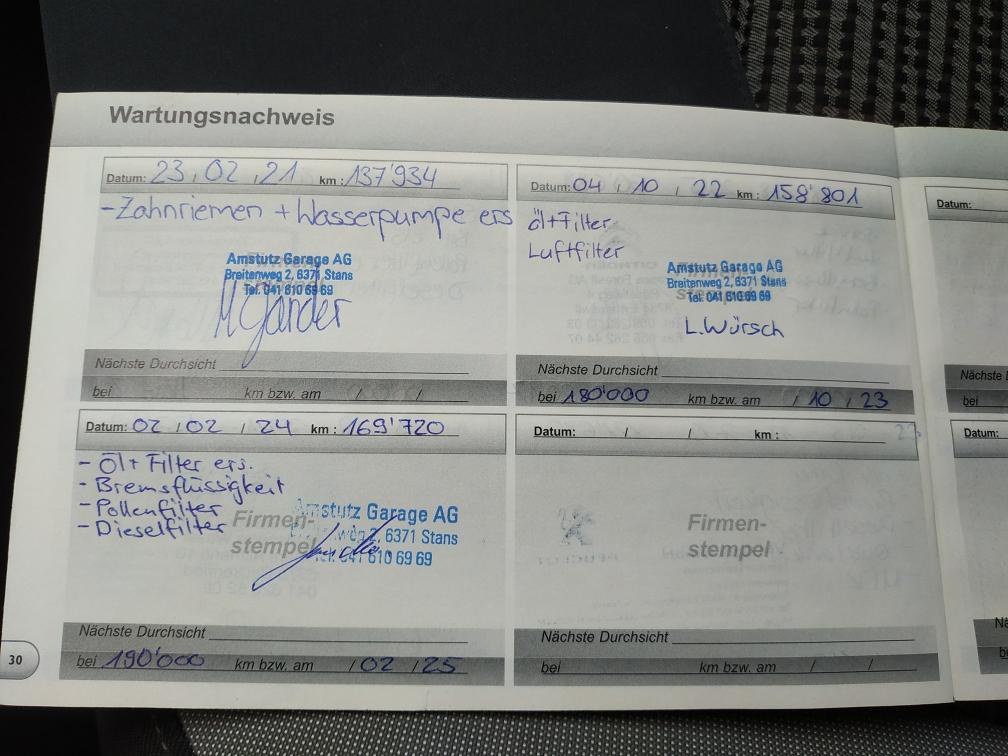 Wartungsnachweis
Datum: 23 . 02 . 21 km : 137'934
- Zahnriemen + Wasserpumpe ers
Amstutz Garage AG
Breitenweg 2, 6371 Stans
Tel. 041 610 69 69
Nächste Durchsicht
bei km bzw. am / /
Datum: 04 / 10 / 22 km : 158'801
öl+Filter
Luftfilter
Firmen-
stempel
Amstutz Garage AG
Breitenweg 2, 6371 Stans
Tel. 041 610 69 69
L. Würsch
Nächste Durchsicht
bei 180'000 km bzw. am / 10 / 23
Datum: 02 / 02 / 24 km : 169'720
- Öl + Filter ers.
- Bremsflüssigkeit
- Pollenfilter
- Dieselfilter
Firmen-
stempel
Amstutz Garage AG
6371 Stans
Tel. 041 610 69 69
Nächste Durchsicht
bei 190'000 km bzw. am / 02 / 25
Datum: / / km :
Firmen-
stempel
Nächste Durchsicht
bei km bzw. am / /
30
Datum:
Nächste
bei
Datum: